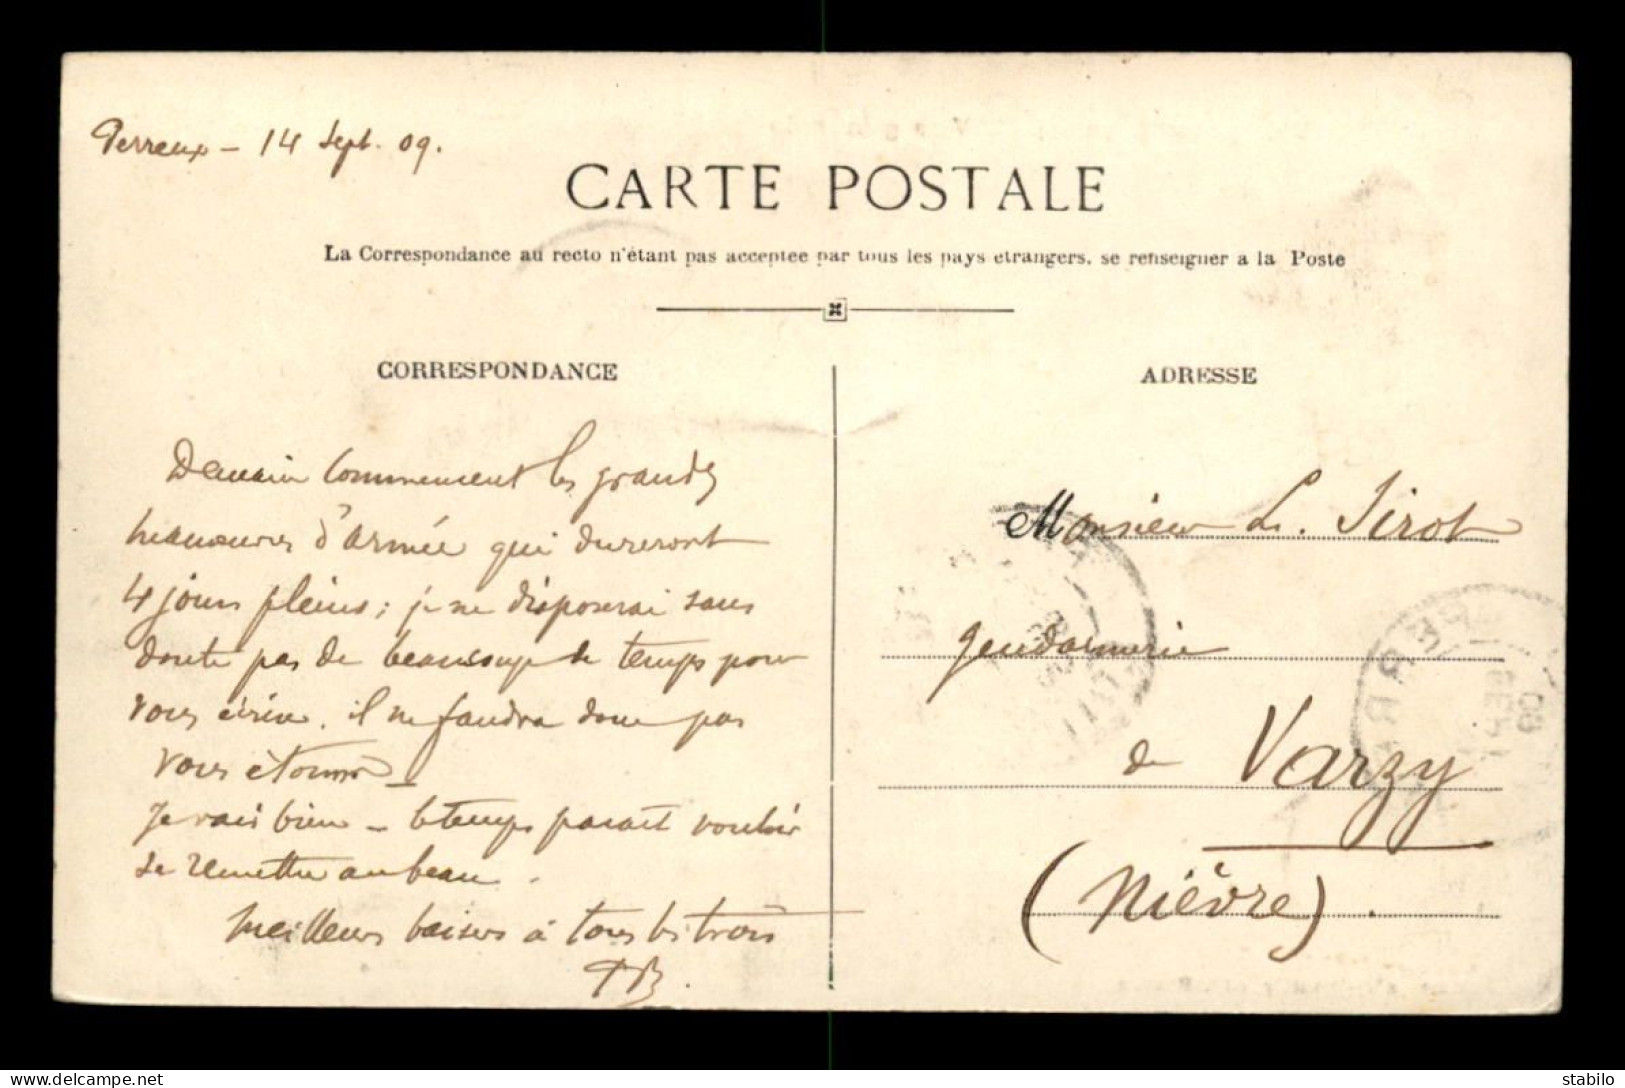 Perreux – 14 Sept. 09.
CARTE POSTALE
La Correspondance au recto n'étant pas acceptee par tous les pays etrangers, se renseigner a la Poste
CORRESPONDANCE
Demain commencent les grandes
manœuvres d'armée qui dureront
4 jours pleins ; je ne disposerai sans
doute pas de beaucoup de temps pour
vous écrire. il ne faudra donc pas
vous étonner –
Je vais bien – le temps parait vouloir
se remettre au beau.
Meilleurs baisers à tous les trois
PB.
ADRESSE
Monsieur L. Sirot
gendarmerie
de Varzy
(Nièvre).
PERR
SEPT
09
stabilo